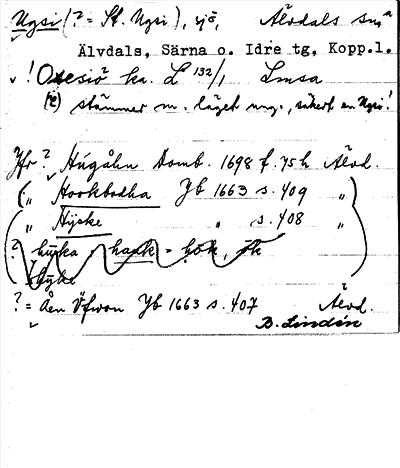 Ugsi (? = St. Ugsi), sjö, Älvdals sn,
Älvdals, Särna o. Idre tg, Kopp.l.
! Oxesiö ka. L 132/1 Lmsa
(?) stämmer m. läget ung., säkert en Ugsi!
Jfr ? Hugåhn Domb. 1698 f. 75 h Älvd.
(„ Hookbodha Jb 1663 s. 409 „
(„ Hycke „ s. 408 „
? huka - haak = bok,
hyke
? = Åen Öfwon Jb 1663 s. 407 Älvd.
B. Lindén